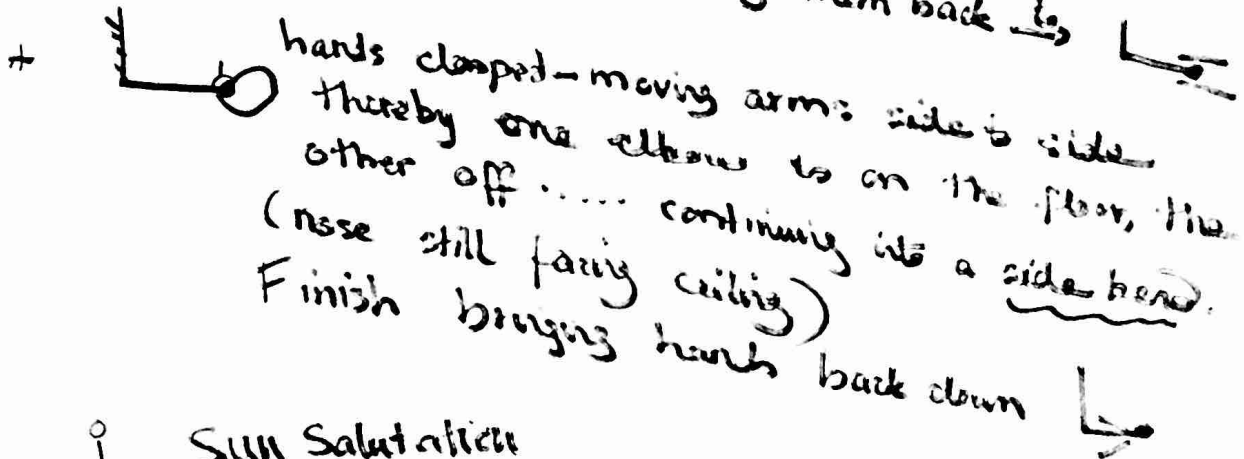 back to
+ hands clasped - moving arms side to side
thereby one elbow is on the floor, the
other off ..... continuing into a side bend.
(nose still facing ceiling)
Finish bringing hands back down
Sun Salutation